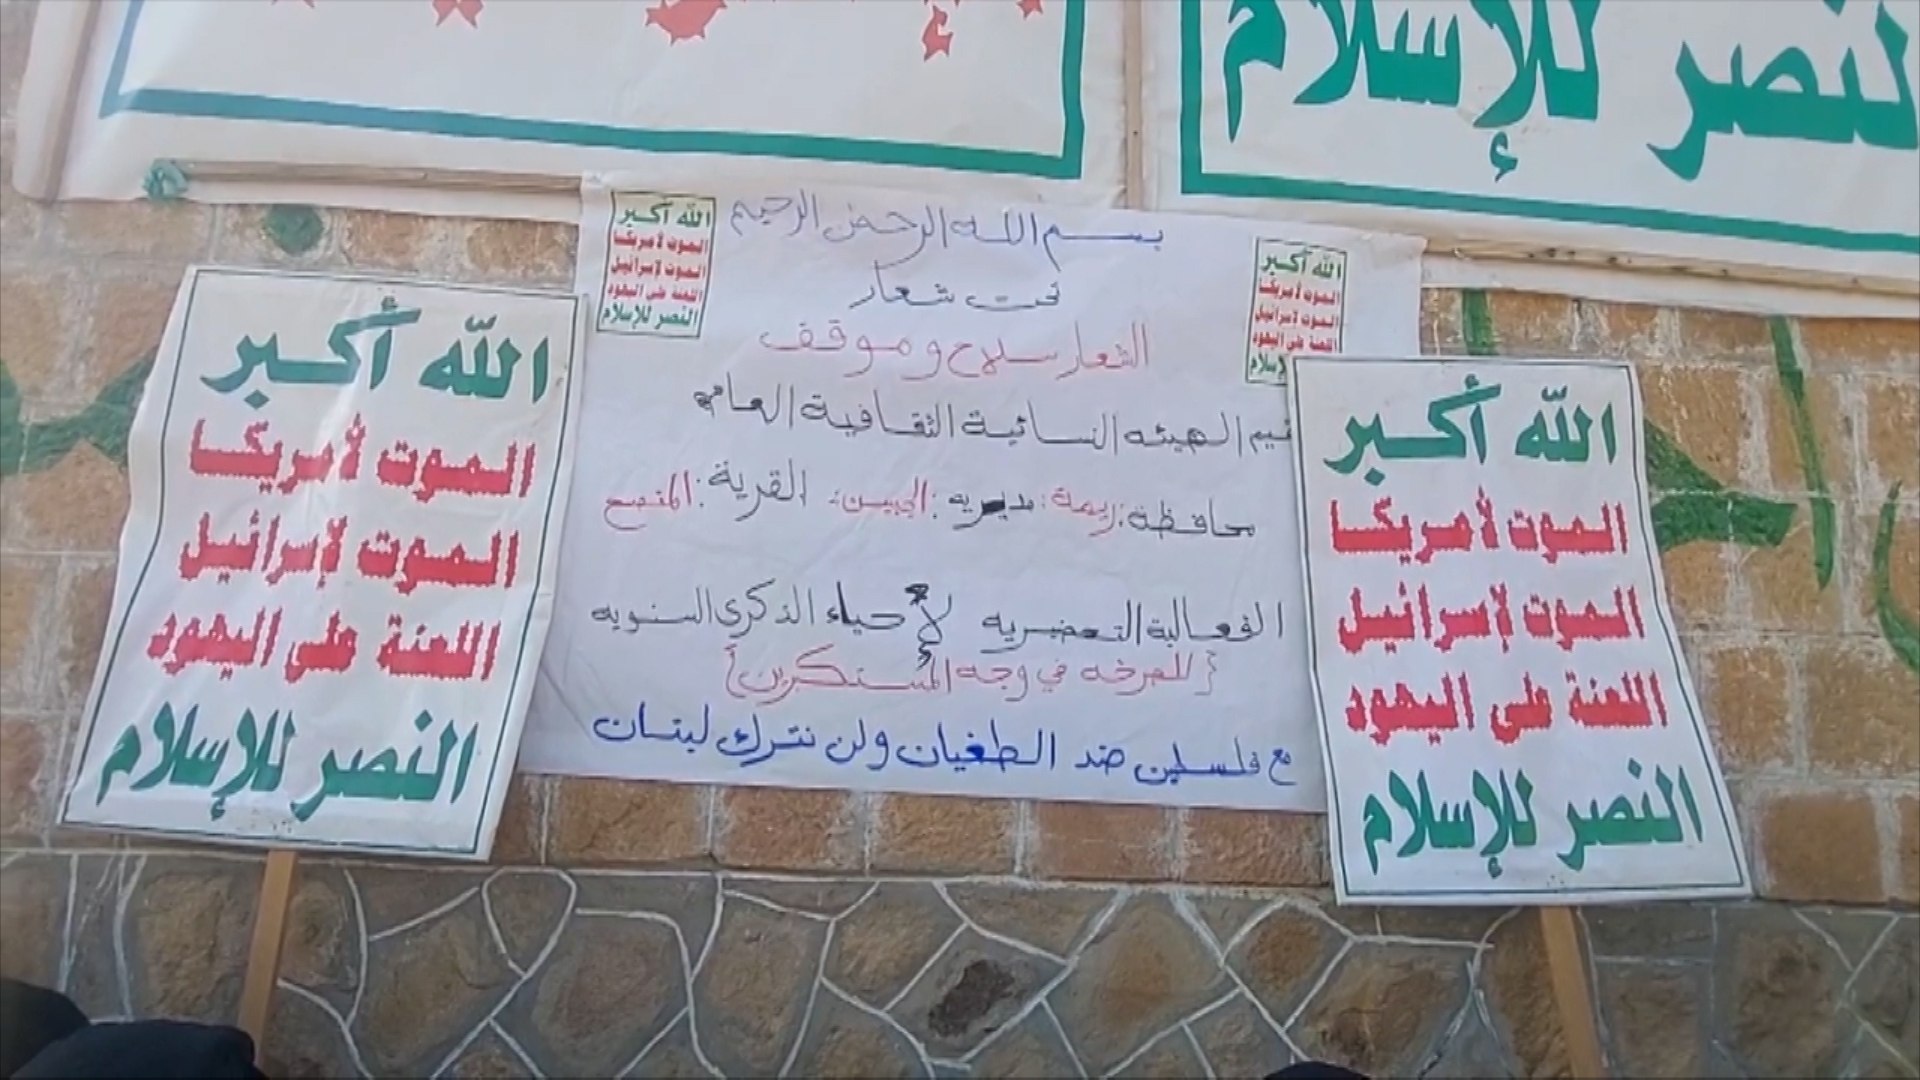 النصر للإسلام
الله أكبر
الموت لأمريكا
الموت لإسرائيل
اللعنة على اليهود
النصر للإسلام
الله أكبر
الموت لأمريكا
الموت لإسرائيل
اللعنة على اليهود
للإسلام
بسم الله الرحمن الرحيم
تحت شعار
الشعار سلاح وموقف
الهيئه النسائية الثقافية العامه
محافظة: ريمة: مديريه: الجبين: القرية:
الفعالية التحضيريه لإحياء الذكرى السنويه
{للصرخه في وجه المستكبرين}
مع فلسطين ضد الطغيان ولن نترك لبنان
الله أكبر
الموت لأمريكا
الموت لإسرائيل
اللعنة على اليهود
النصر للإسلام
الله أكبر
الموت لأمريكا
الموت لإسرائيل
اللعنة على اليهود
النصر للإسلام